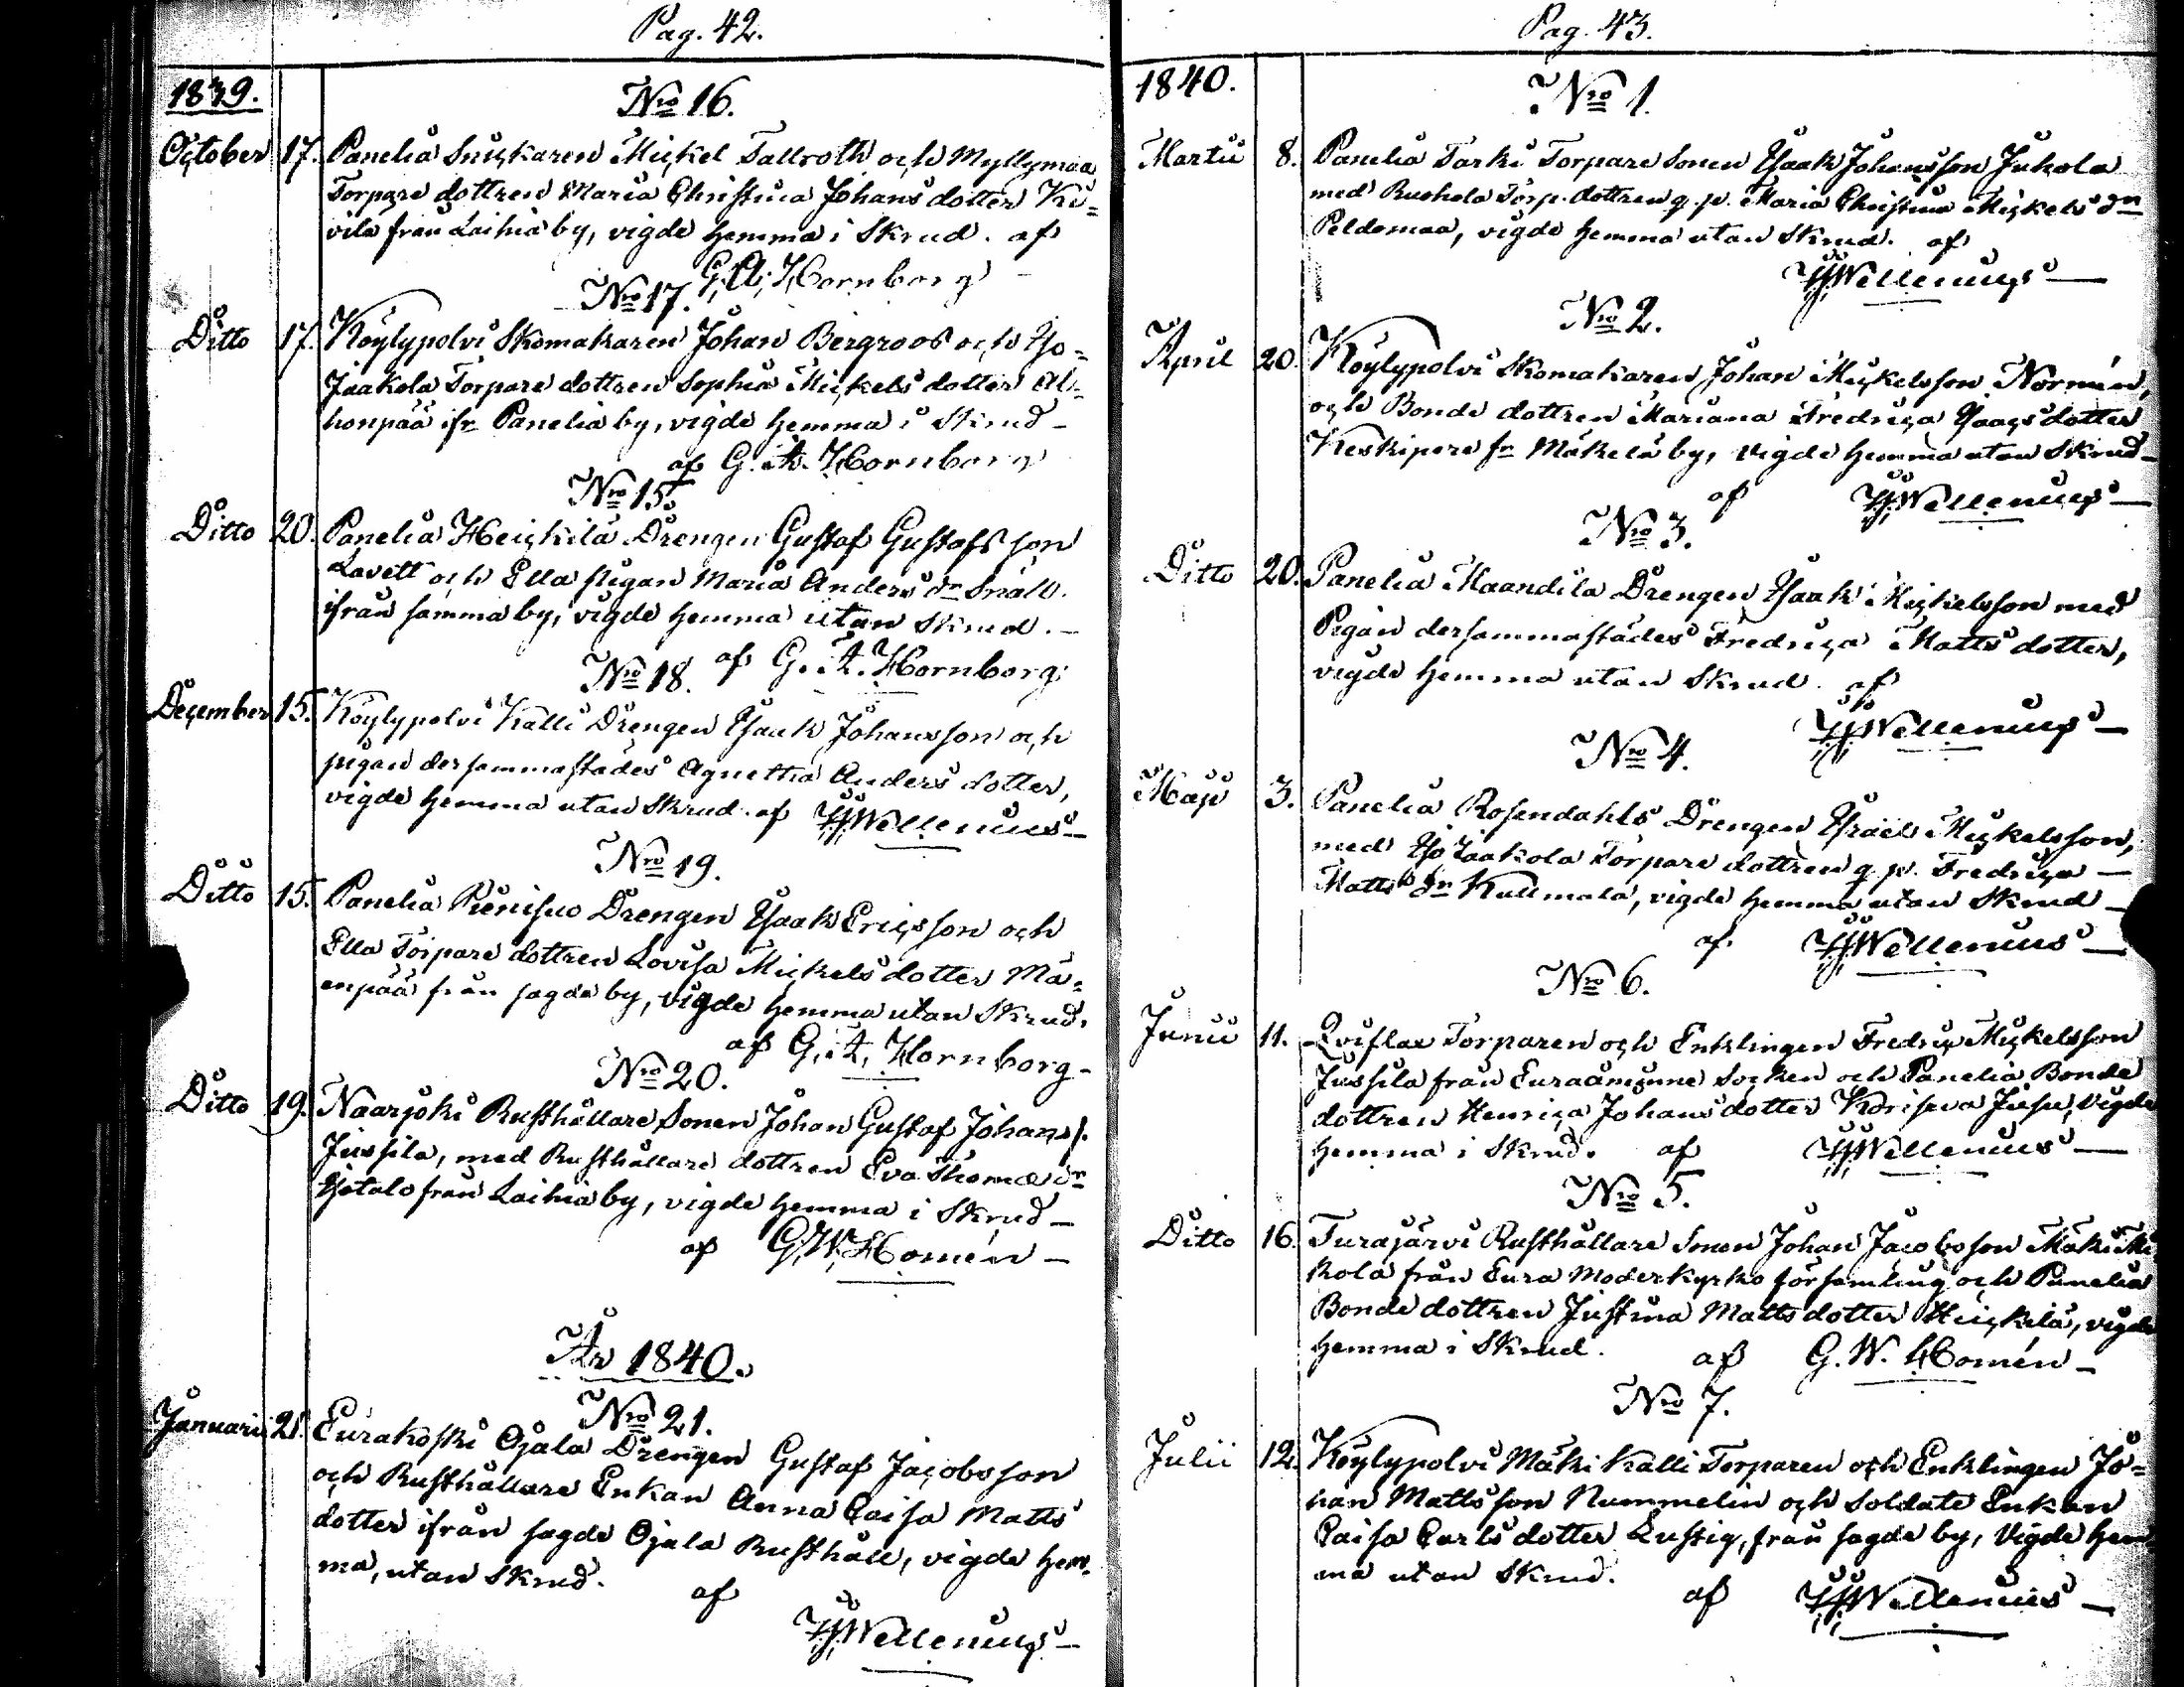 Pag. 42.
1839.
Nro 16.
October 17. Panelia Snickaren Mickel Tallroth och Myllymaa
Torpare dottren Maria Christina Johans dotter Ki-
vilä från Laihia by, vigde hemma i Skrud. af
G. A. Hornborg
Nro 17.
Ditto 17. Köylypolvi Skomakaren Johan Bergroos och Iso-
Jaakola Torpare dottren Sophia Mickels dotter Al-
honpää ifr Panelia by, vigde hemma i Skrud
af G. A. Hornborg
Nro 15.
Ditto 20. Panelia Heickilä Drengen Gustaf Gustafsson
Lavett och Ella pigan Maria Anders dr Snäll.
ifrån samma by, vigde hemma utan Skrud. —
af G. A. Hornborg
Nro 18.
December 15. Köylypolvi Källi Drengen Isaak Johansson och
pigan dersammastädes Agnetha Anders dotter,
vigde hemma utan Skrud. af HJWellenius —
Nro 19.
Ditto 15. Panelia Drengen Isaak Ericsson och
Ella Torpare dottren Lovisa Mickels dotter Mä-
enpää från sagda by, vigde hemma utan Skrud.
af G. A. Hornborg —
Nro 20.
Ditto 19. Naarjoki Rusthållare Sonen Johan Gustaf Johanss.
Jussila, med Rusthållare dottren Eva Thomæ dr
från Laihia by, vigde hemma i Skrud —
af G. W. Homén —
År 1840.
Nro 21.
Januarii 21. Eurakoski Ojala Drengen Gustaf Jacobsson
och Rusthållare Enkan Anna Caisa Matts
dotter ifrån sagde Ojala Rusthåll, vigde hem-
ma, utan Skrud.
af
HJWellenius —
Pag. 43.
1840.
Nro 1.
Martii 8. Panelia Tarki Torpare Sonen Isaak Johansson Jukola
med Ruohola Torp. dottren q. p. Maria Christina Mickels dr
Peldomaa, vigde hemma utan Skrud. af
HJWellenius —
Nro 2.
April 20. Köylypolvi Skomakaren Johan Mickelsson Normén,
och Bonde dottren Mariana Fredrica Isaacs dotter
Keskipere fr Mäkelä by, vigde hemma utan Skrud —
af HJWellenius —
Nro 3.
Ditto 20. Panelia Maandila Drengen Isaak Mickelsson med
Pigan dersammastädes Fredrica Matts dotter,
vigde hemma utan Skrud. af
HJWellenius —
Nro 4.
Maji 3. Panelia Rosendahls Drengen Israel Mickelsson,
med Iso Jaakola Torpare dottren q. p. Fredrica —
Matts dr Kullmala, vigde hemma utan Skrud —
af HJWellenius —
Nro 6.
Junii 11. Qviflax Torparen och Enklingen Fredric Mickelsson
Jussila från Euraåminne Socken och Panelia Bonde
dottren Henrica Johans dotter Koriseva Jusu, vigde
hemma i Skrud. af HJWellenius —
Nro 5.
Ditto 16. Turajärvi Rusthållare Sonen Johan Jacobsson Mäki Mi
kola från Eura Moderkyrko församling och Panelia
Bonde dottren Justina Matts dotter Heickilä, vigde
hemma i Skrud. af G. W. Homén —
Nro 7.
Julii 12. Köylypolvi Mäki Källi Torparen och Enklingen Jo-
han Mattsson Nummelin och Soldats Enkan
Caisa Carls dotter Lustig, från sagde by, Vigde hem
ma utan Skrud.
af HJWellenius —